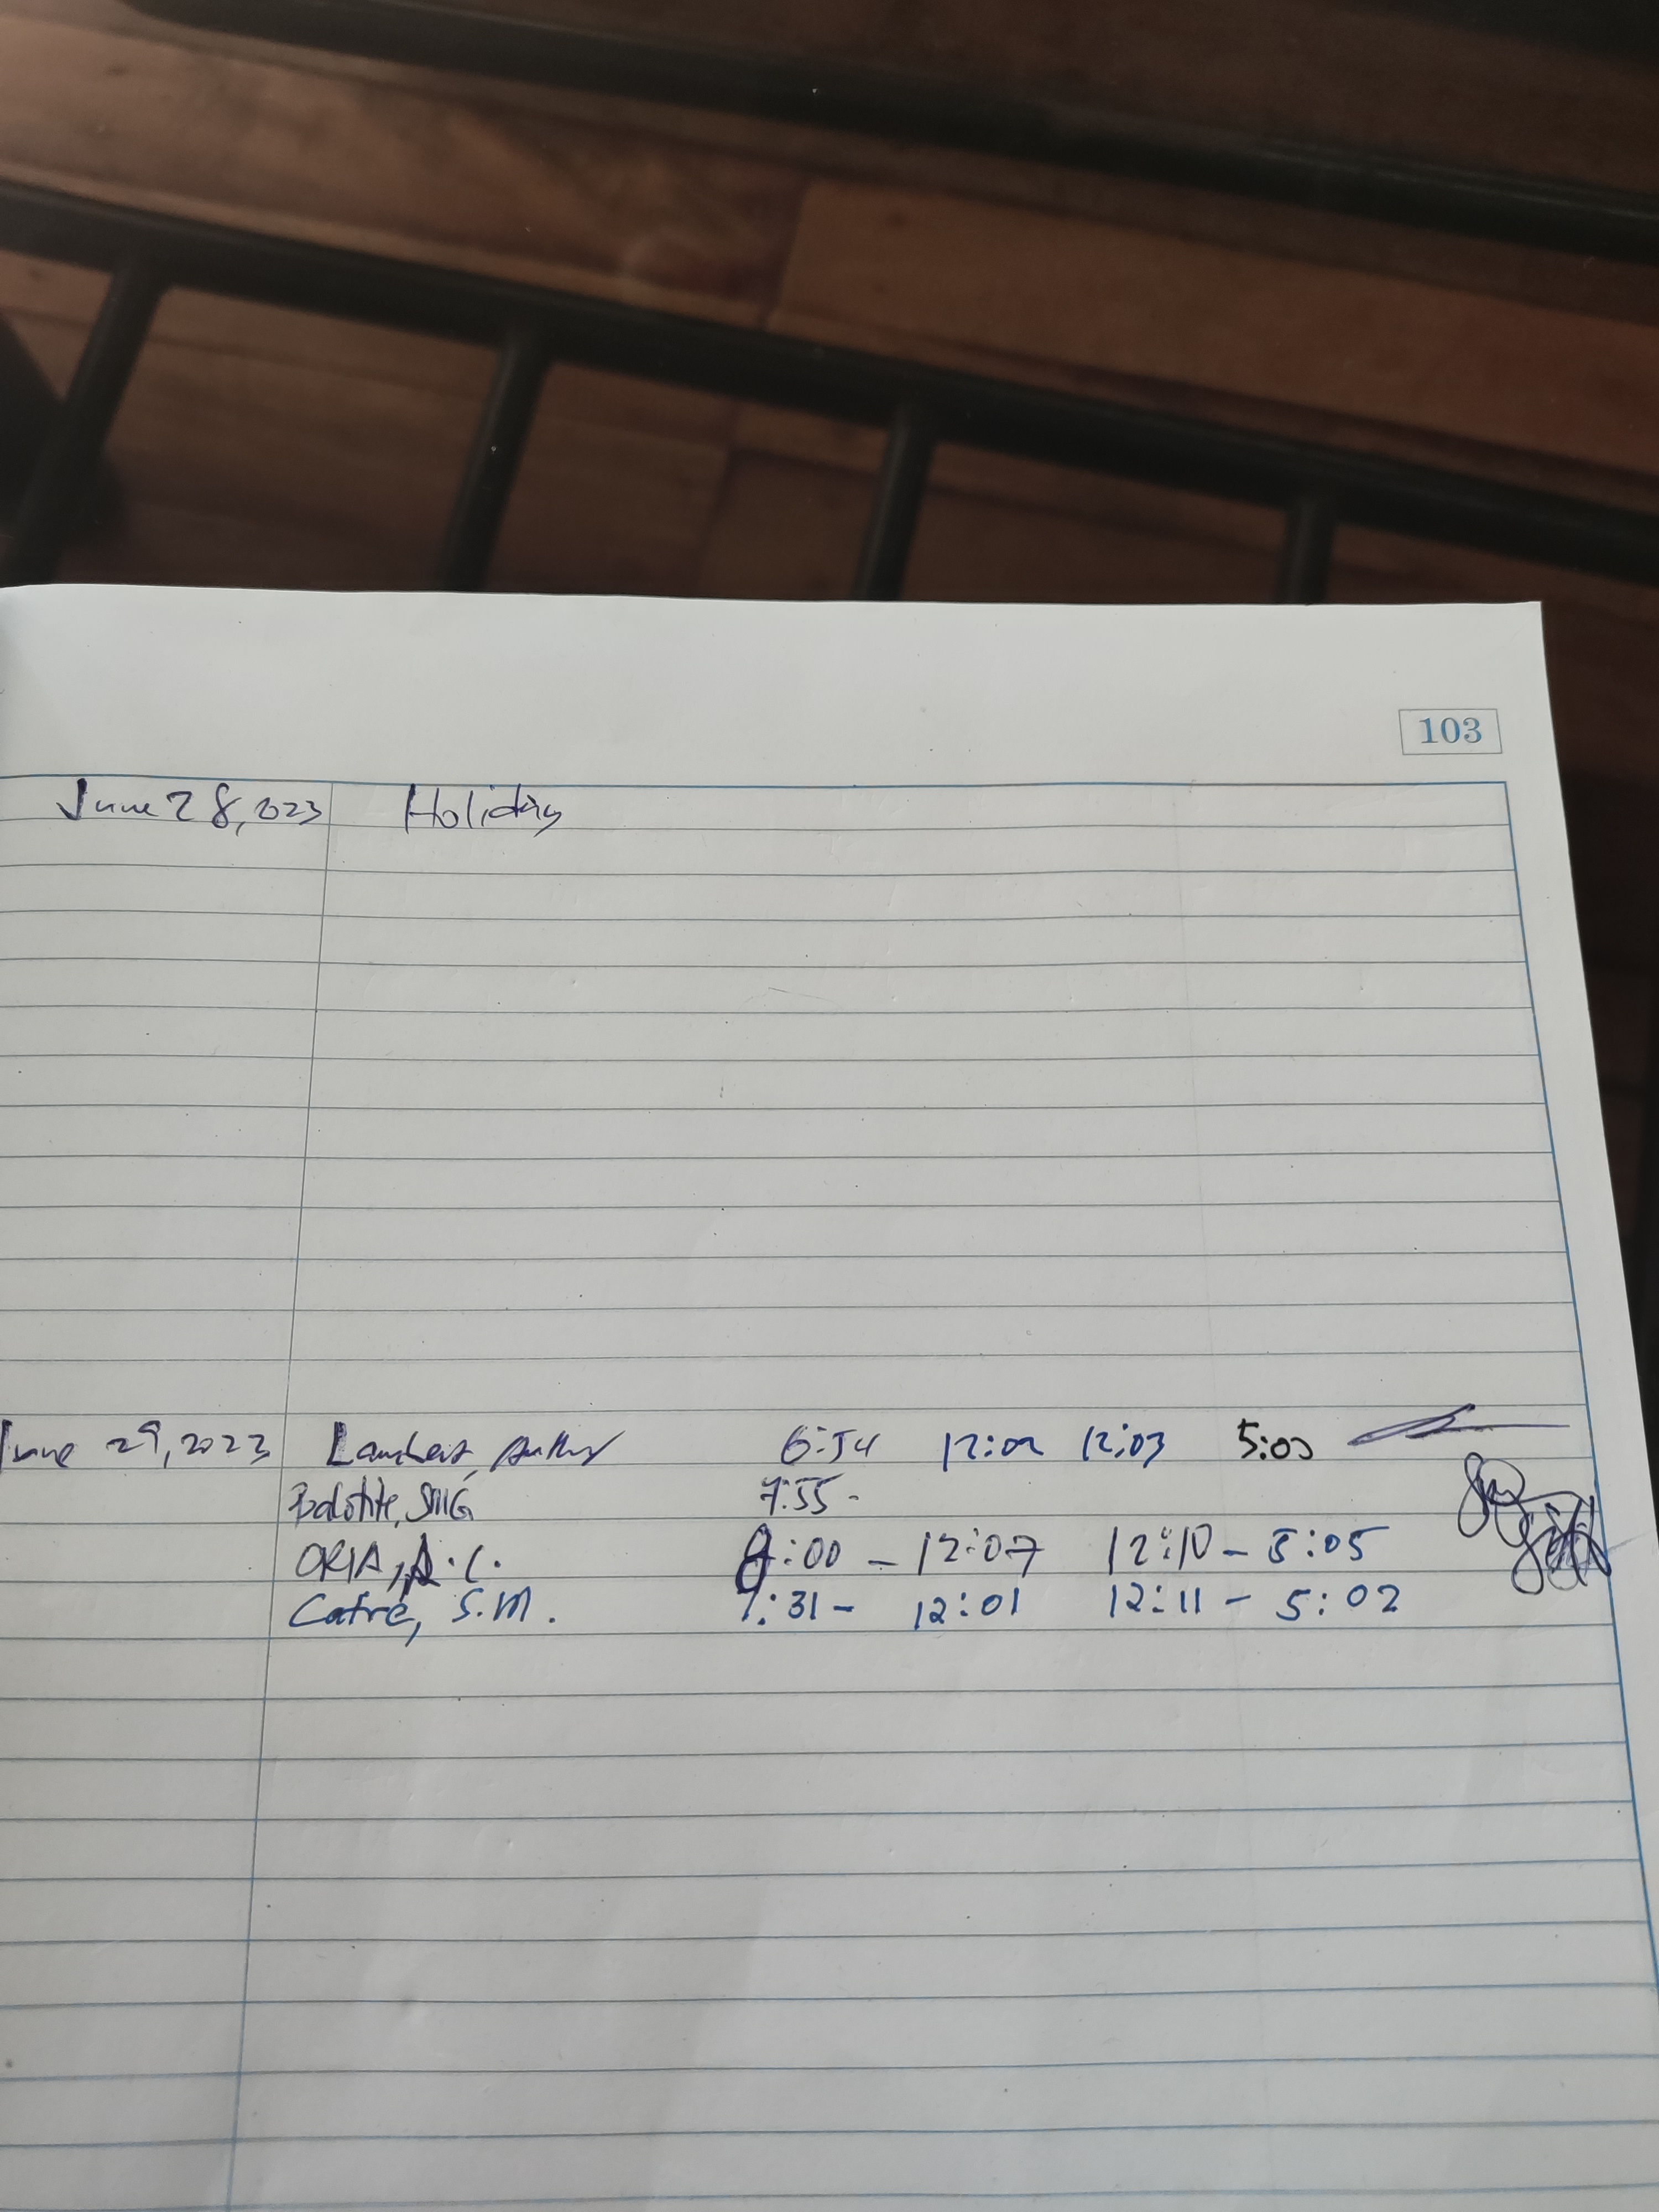 103
June 28, 2023 Holiday
June 29, 2023 6:54 12:02 12:03 5:00
7:55 -
ORIA, A.C. 8:00 - 12:07 12:10 - 5:05
Catre, S.M. 7:31 - 12:01 12:11 - 5:02